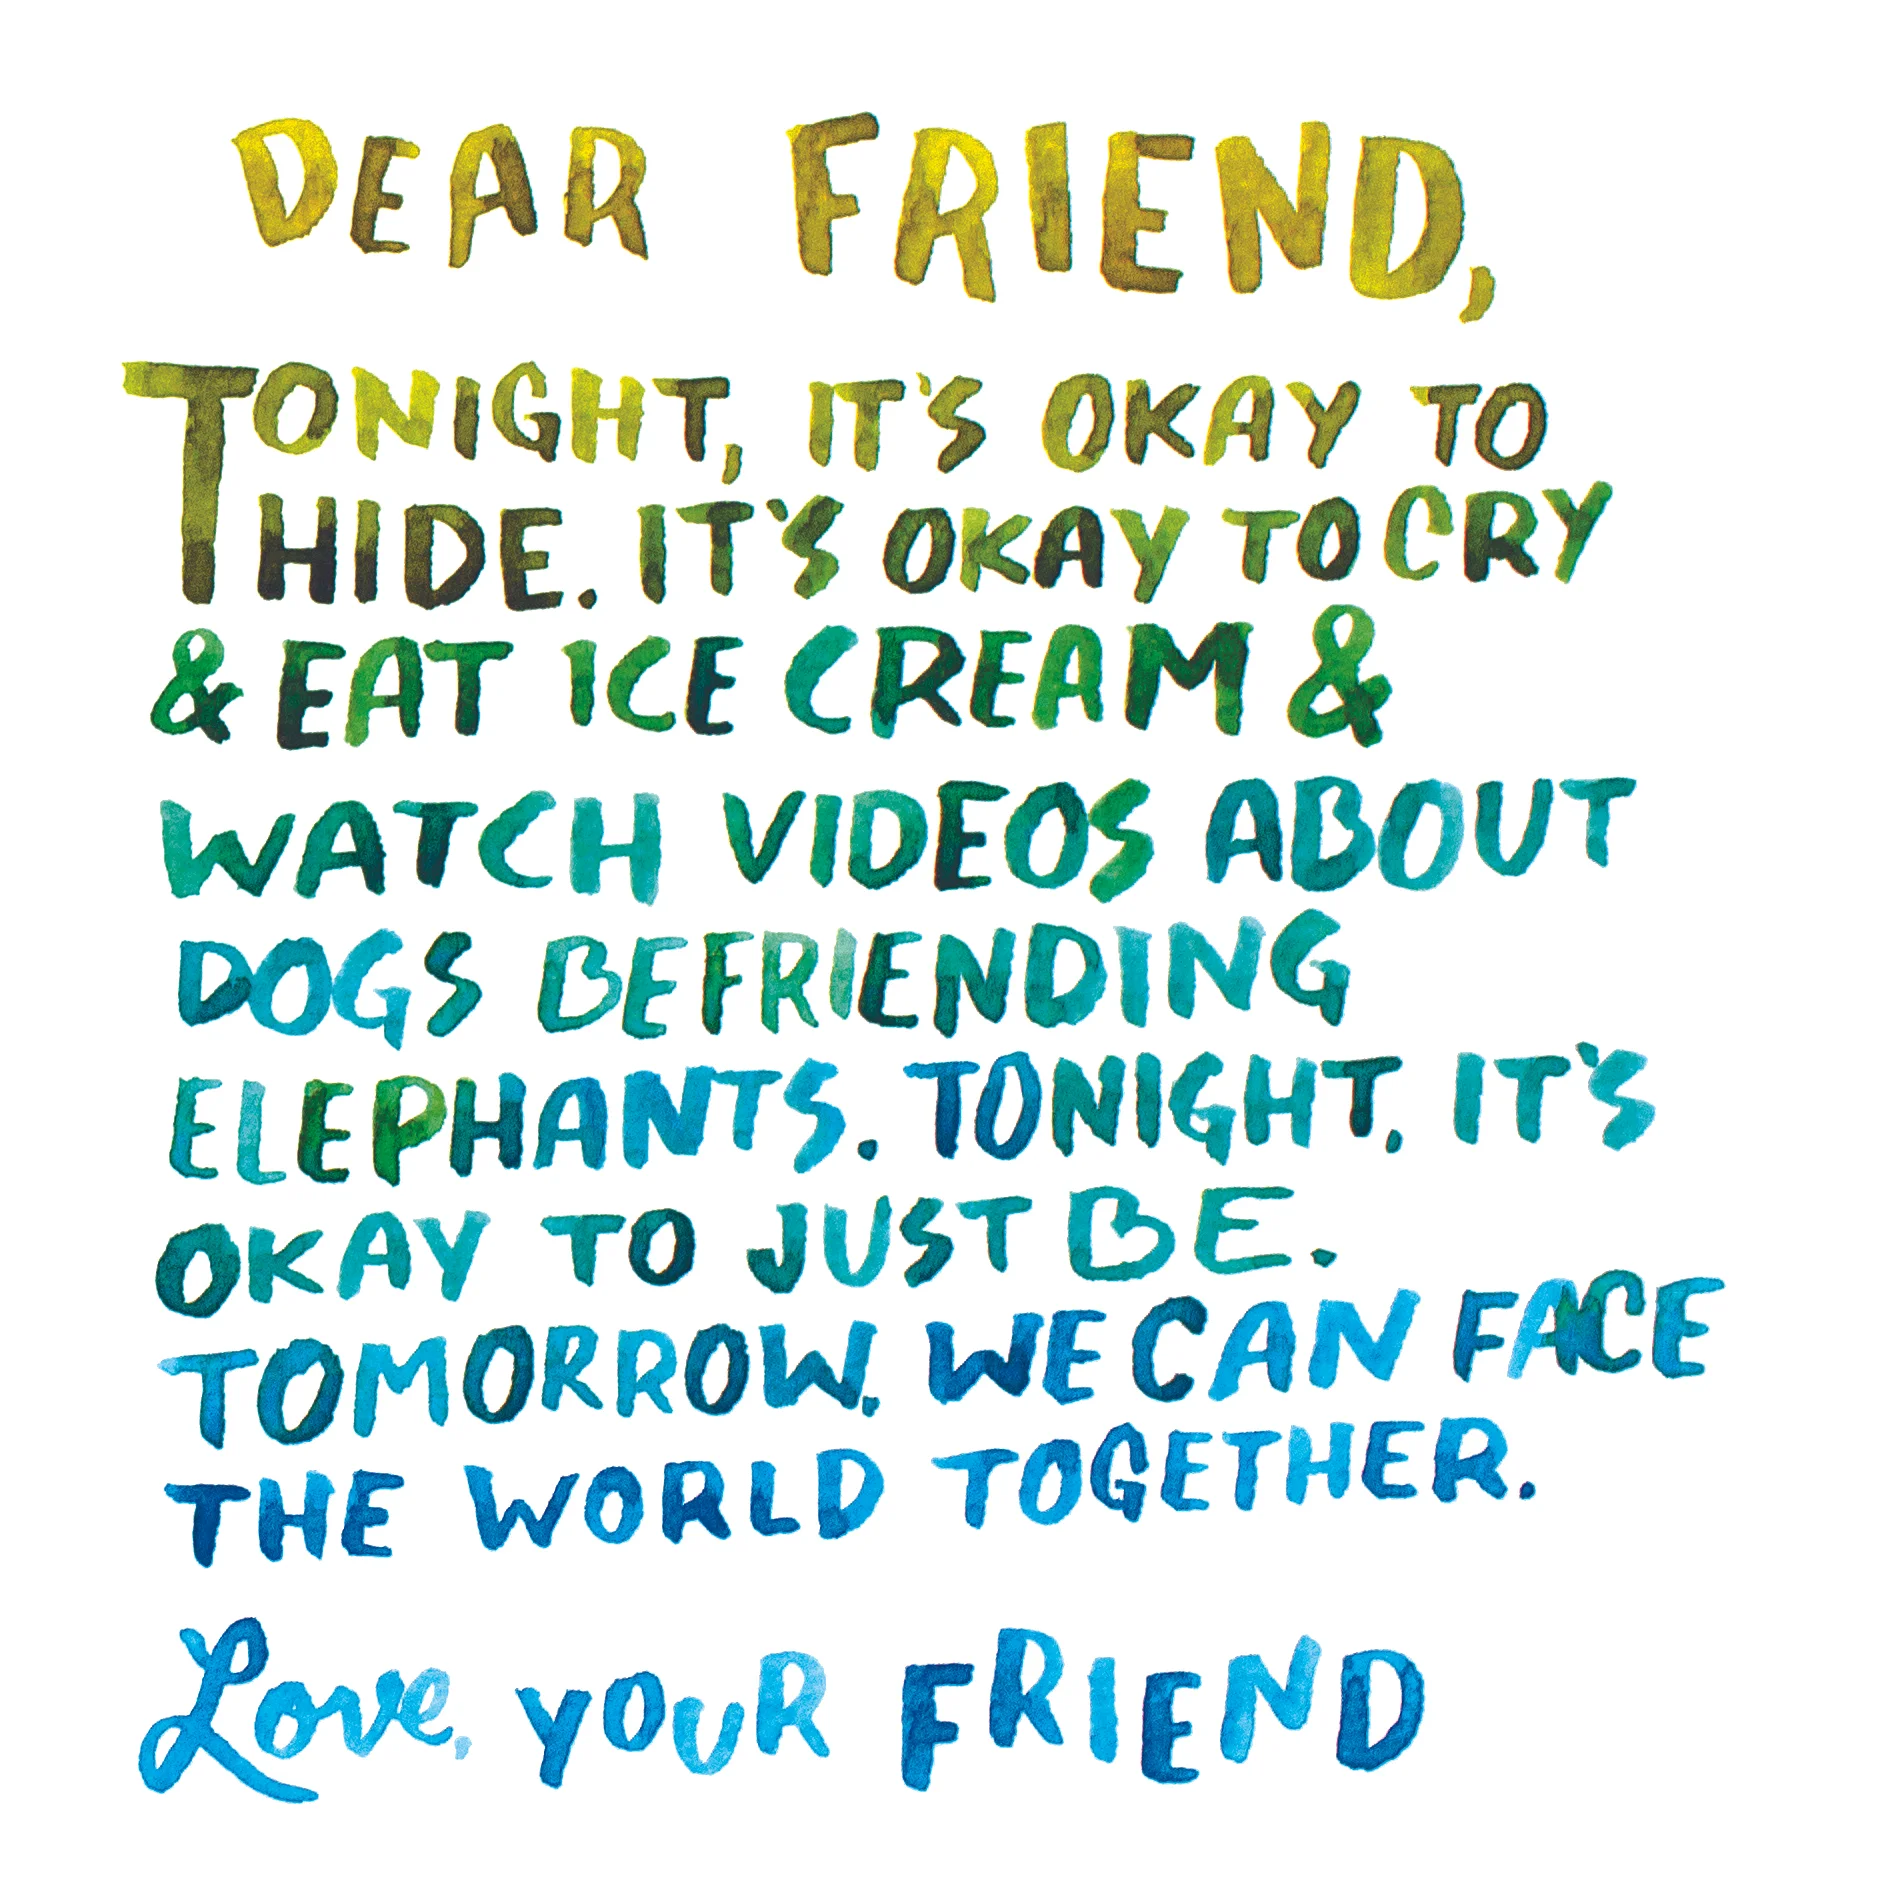 DEAR FRIEND,
TONIGHT, IT'S OKAY TO
HIDE. IT'S OKAY TO CRY
& EAT ICE CREAM &
WATCH VIDEOS ABOUT
DOGS BEFRIENDING
ELEPHANTS. TONIGHT, IT'S
OKAY TO JUST BE.
TOMORROW, WE CAN FACE
THE WORLD TOGETHER.
Love, YOUR FRIEND